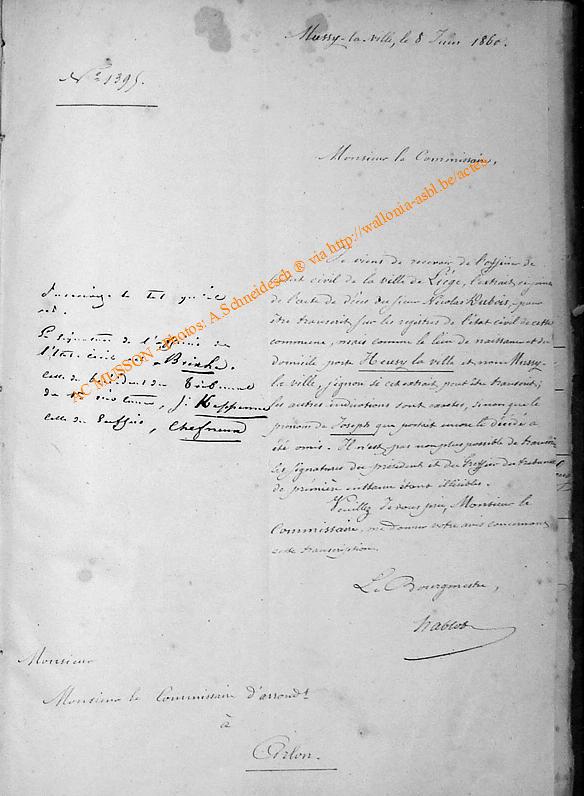 Mussy-la-ville, le 8 Juin 1860.
N° 1395.
Monsieur le Commissaire,
Je viens de recevoir de l'officier de
l'état civil de la ville de Liège, l'extrait ci-joint
de l'acte de décès du sieur Nicolas Dubois, pour
être transcrit sur les registres de l'état civil de cette
commune, mais comme le lieu de naissance et du
domicile porte Heussy la ville et non Mussy-
la ville, j'ignore si cet extrait peut être transcrit;
les autres indications sont exactes, sinon que le
prénom de Joseph que portait encore le décédé a
été omis. Il n'est pas non plus possible de transcrire
les signatures du président et du Greffier du tribunal
de première instance étant illisibles.
Veuillez, je vous prie, Monsieur le
Commissaire, me donner votre avis concernant
cette transcription.
Le Bourgmestre,
Nablot
tel qu'il
est.
La signature de l'officier de
l'état civil est
celle du Président du Tribunal
de J. Keppenne
celle du Greffier,
Monsieur
Monsieur le Commissaire d'arrondt
à
Arlon.
AC MUSSON - Photos: A.Schneidesch ® via http://wallonia-asbl.be/actes